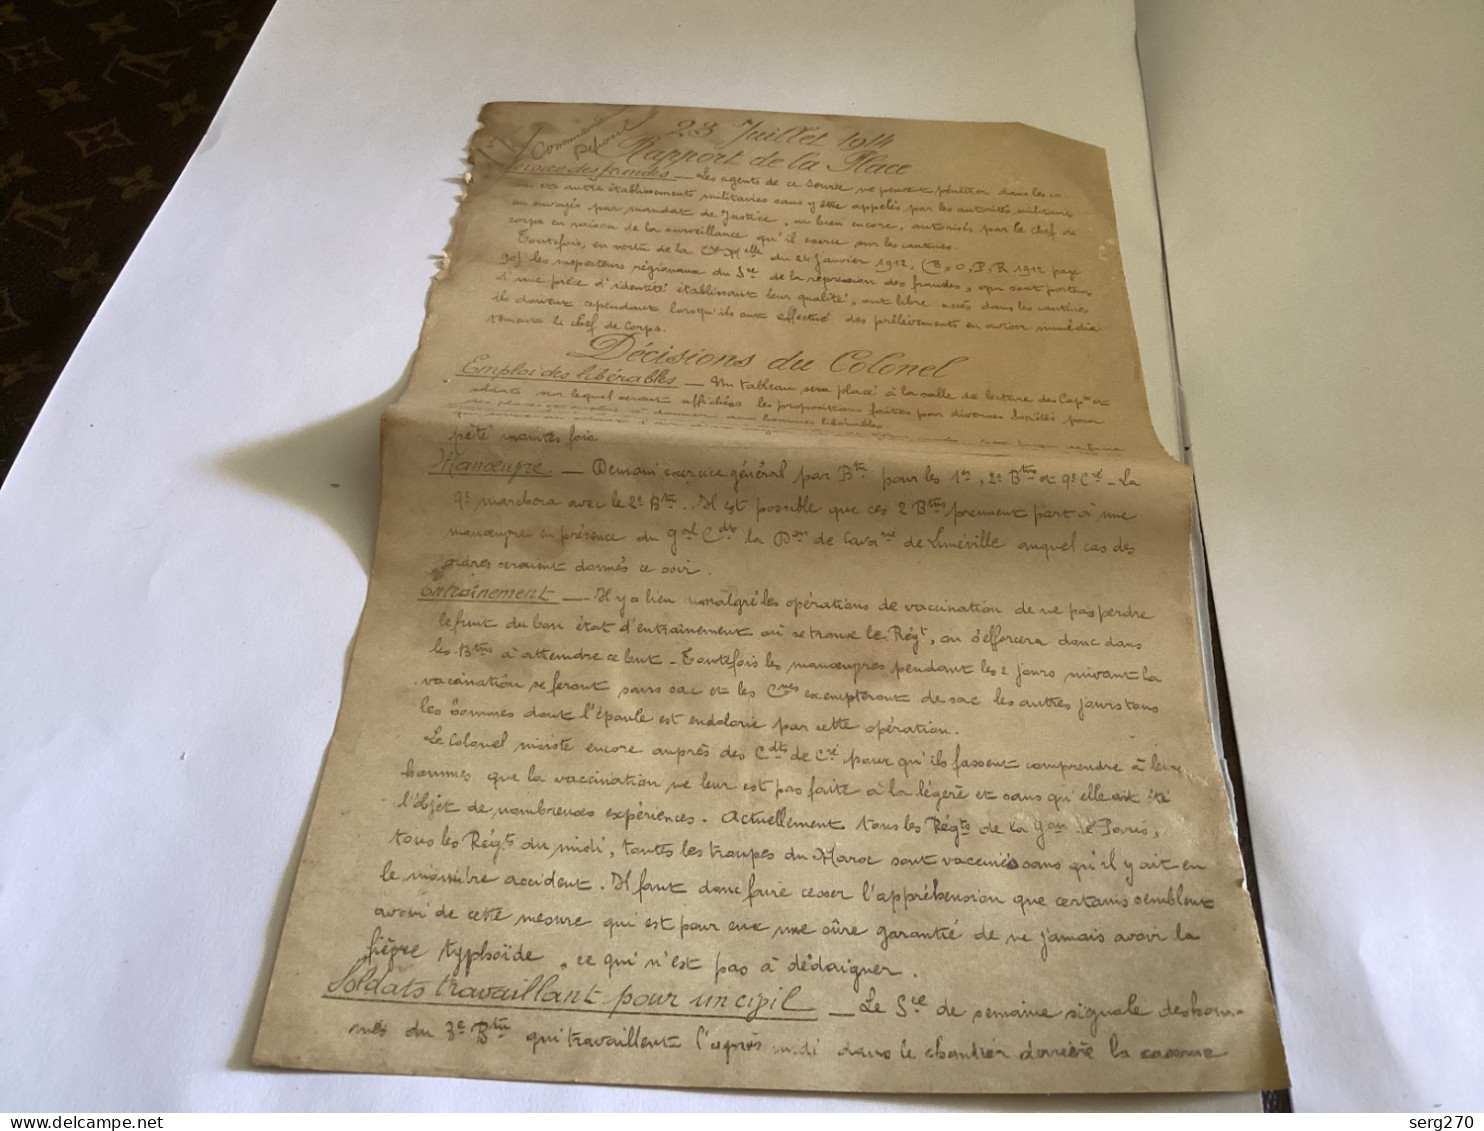 23 Juillet 1914
Rapport de la Place
des fraudes — Les agents de ce Service ne peuvent pénétrer dans les ca
et autres établissements militaires sans y être appelés par les autorités militaires
ou envoyés par mandat de Justice, ou bien encore, autorisés par le chef de
corps en raison de la surveillance qu'il exerce sur les cantines.
Toutefois, en vertu de la Cre Mlle du 24 Janvier 1912, (B.O, P, R 1912 page
90) les inspecteurs régionaux du Sce de la répression des fraudes, qui sont porteurs
d'une pièce d'identité établissant leur qualité, ont libre accès dans les cantines
ils doivent cependant lorsqu'ils ont effectué des prélèvements en aviser immédia
tement le chef de corps.
Décisions du Colonel
Emploi des libérables — Un tableau sera placé à la salle de lecture des Capx et
soldats sur lequel seront affichées les propositions faites par diverses Sociétés pour
des places ou emplois à donner aux hommes libérables
pété maintes fois
Manœuvre — Demain exercice général par Bon pour les 1er, 2e Btons et 9e Cie — La
9e marchera avec le 2e Bon. Il est possible que ces 2 Btons prennent part à une
manœuvre en présence du Gal Cdt la Don de Cavie de Lunéville auquel cas des
ordres seraient donnés ce soir.
Entraînement — Il y a lieu malgré les opérations de vaccination de ne pas perdre
le fruit du bon état d'entraînement où se trouve le Régt, on s'efforcera donc dans
les Btons à atteindre ce but — Toutefois les manœuvres pendant les 2 jours suivant la
vaccination se feront sans sac et les Cies exempteront de sac les autres jours tous
les hommes dont l'épaule est endolorie par cette opération.
Le Colonel insiste encore auprès des Cdts de Cie pour qu'ils fassent comprendre à leurs
hommes que la vaccination ne leur est pas faite à la légère et sans qu'elle ait été
l'objet de nombreuses expériences. Actuellement tous les Régts de la Gon de Paris,
tous les Régts du midi, toutes les troupes du Maroc sont vaccinés sans qu'il y ait eu
le moindre accident. Il faut donc faire cesser l'appréhension que certains semblent
avoir de cette mesure qui est pour eux une sûre garantie de ne jamais avoir la
fièvre typhoïde, ce qui n'est pas à dédaigner.
Soldats travaillant pour un civil — Le Sce de semaine signale des hom-
mes du 3e Bon qui travaillent l'après midi dans le chantier derrière la caserne
delcampe.net
serg270